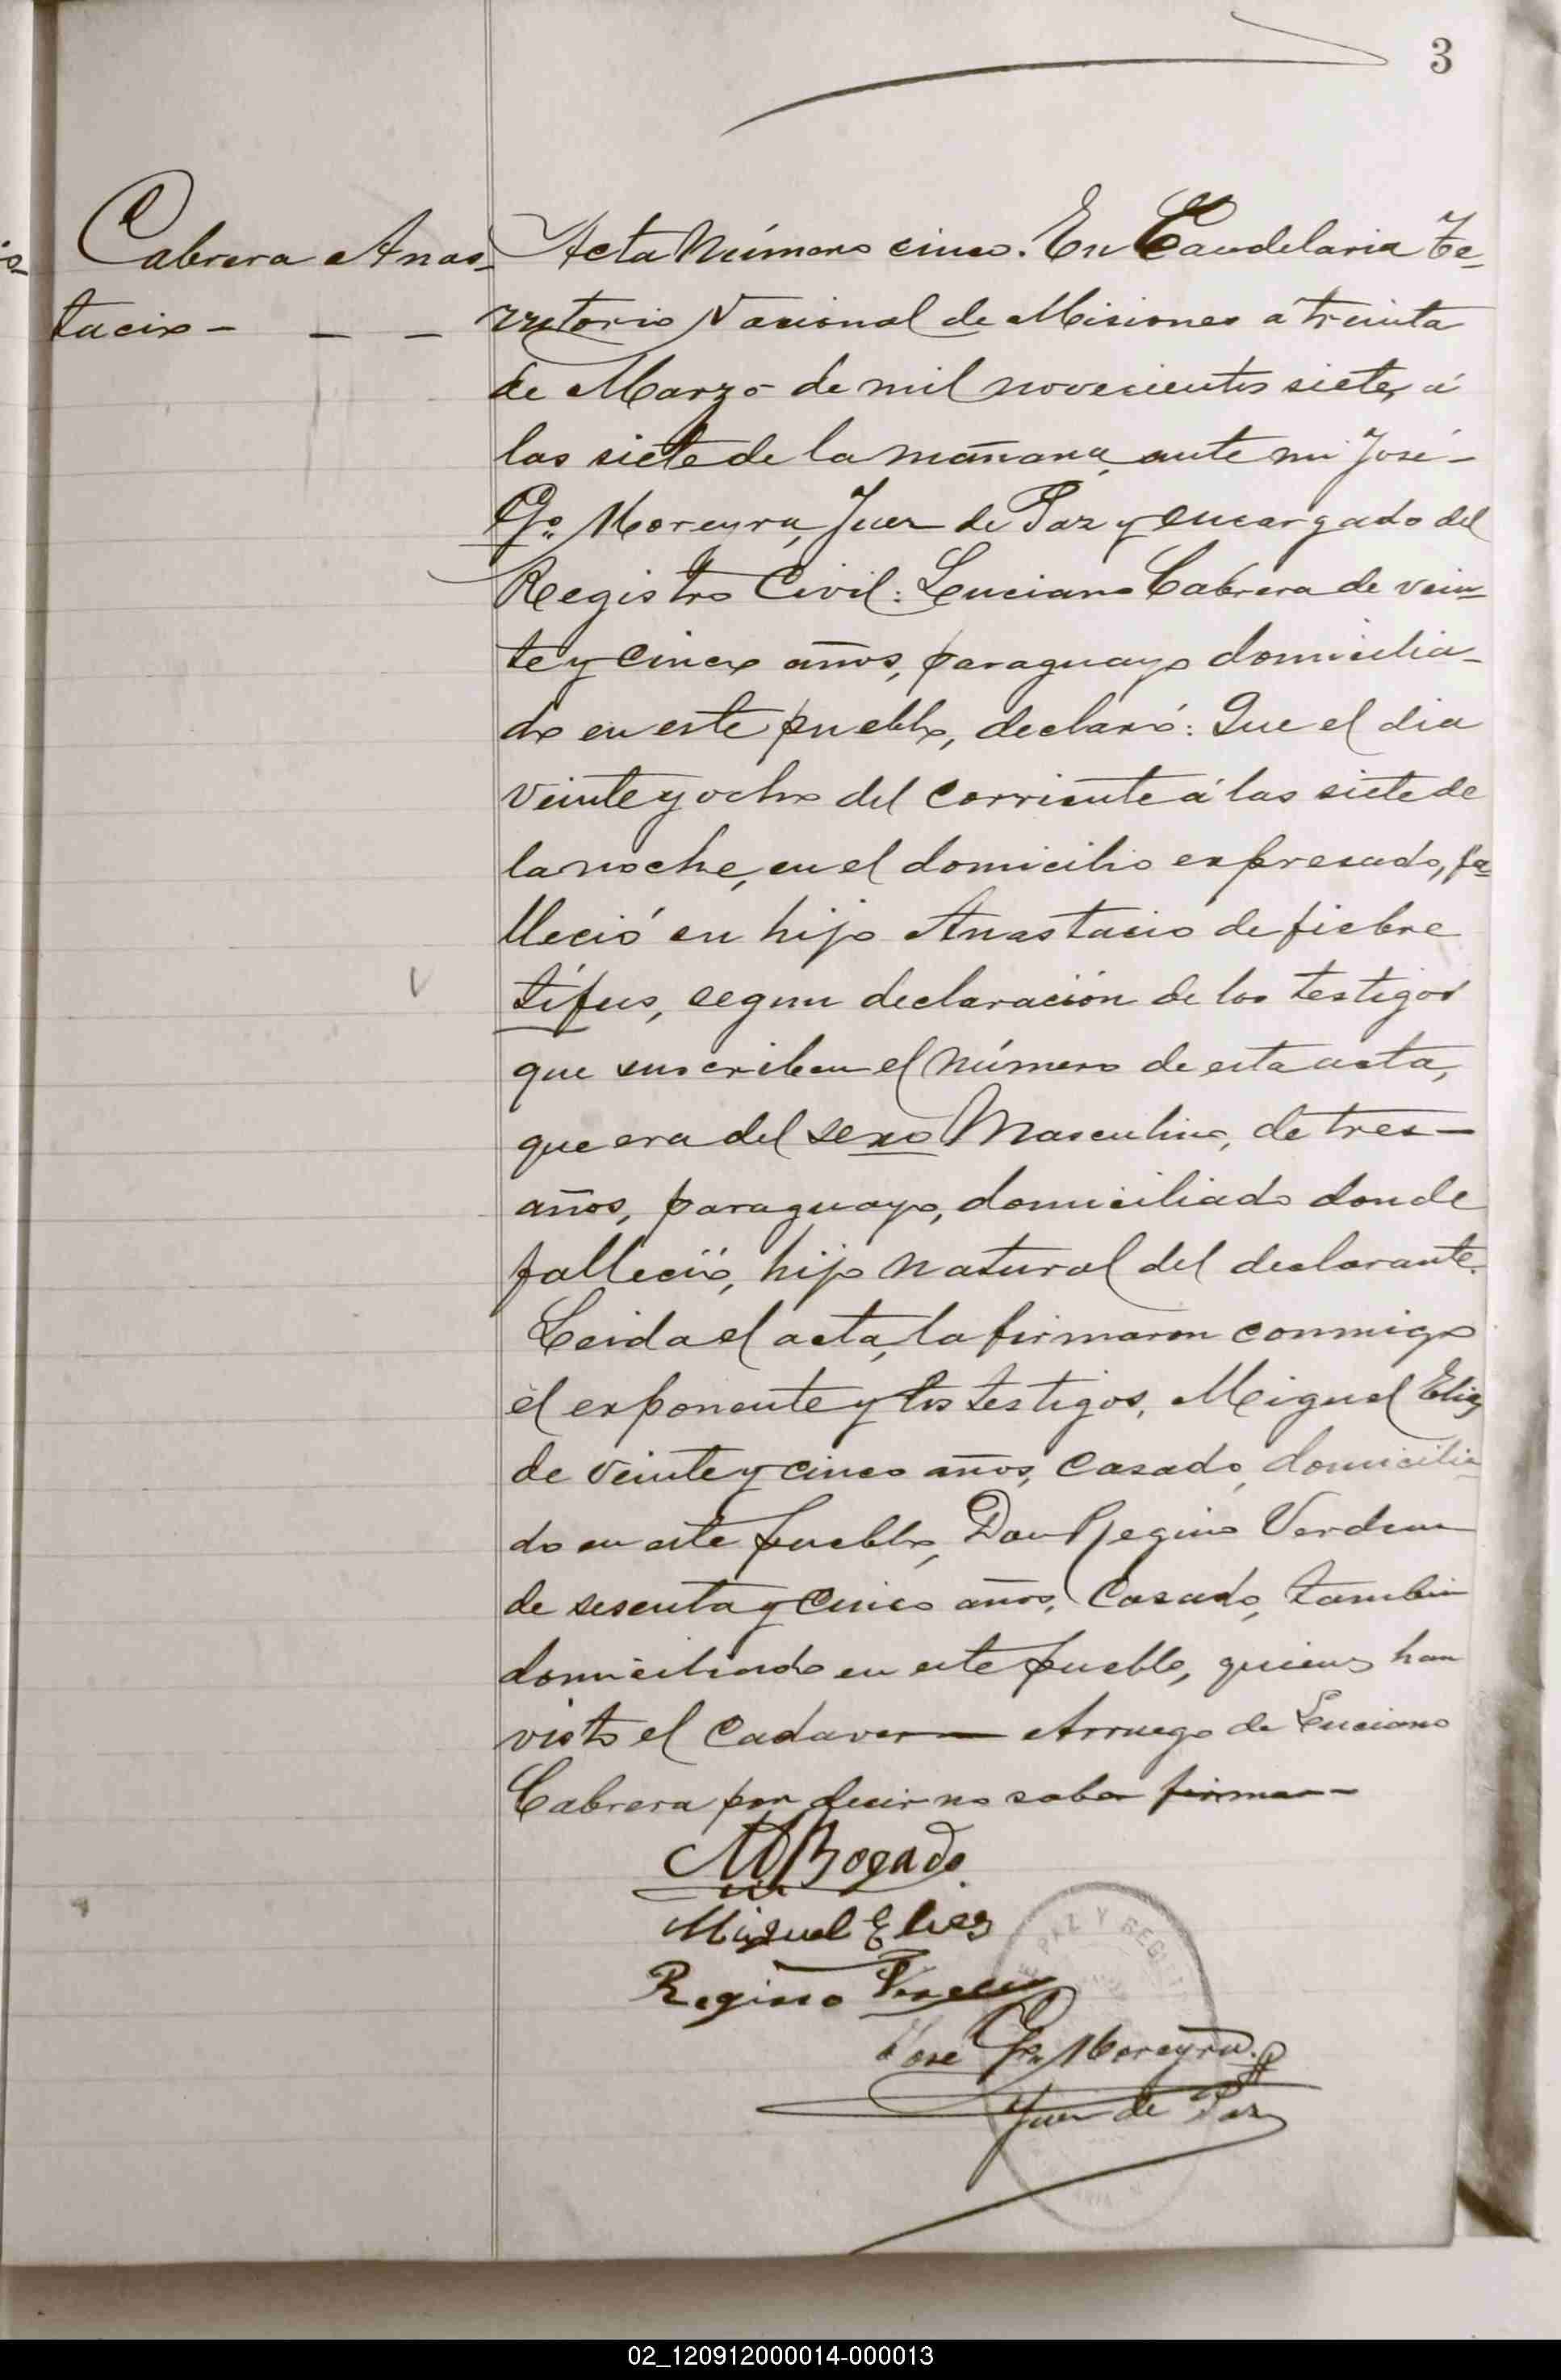 3
Cabrera Anas-
tacio - - -
Acta Número cinco. En Candelaria Te-
rritorio Nacional de Misiones á treinta
de Marzo de mil novecientos siete, á
las siete de la mañana, ante mi José -
Go. Moreyra, Juez de Paz y encargado del
Registro Civil: Luciano Cabrera de vein-
te y cinco años, paraguayo domicilia-
do en este pueblo, declaró: Que el dia
veinte y ocho del corriente á las siete de
la noche, en el domicilio expresado, fa-
lleció su hijo Anastacio de fiebre
tífus, segun declaración de los testigos
que suscriben el número de esta acta,
que era del sexo Masculino, de tres -
años, paraguayo, domiciliado donde
falleció, hijo natural del declarante.
Leida el acta, la firmaron conmigo
el exponente y los testigos, Miguel Elias
de veinte y cinco años, casado, domicilia-
do en este pueblo, Don Regino
de sesenta y cinco años, casado, tambien
domiciliado en este pueblo, quienes han
visto el cadaver — Arruego de Luciano
Cabrera por decir no saber firmar -
M Bogado
Miguel Elias
Regino
PAZ Y REGI
José Go. Moreyra
Juez de Paz
02_120912000014-000013